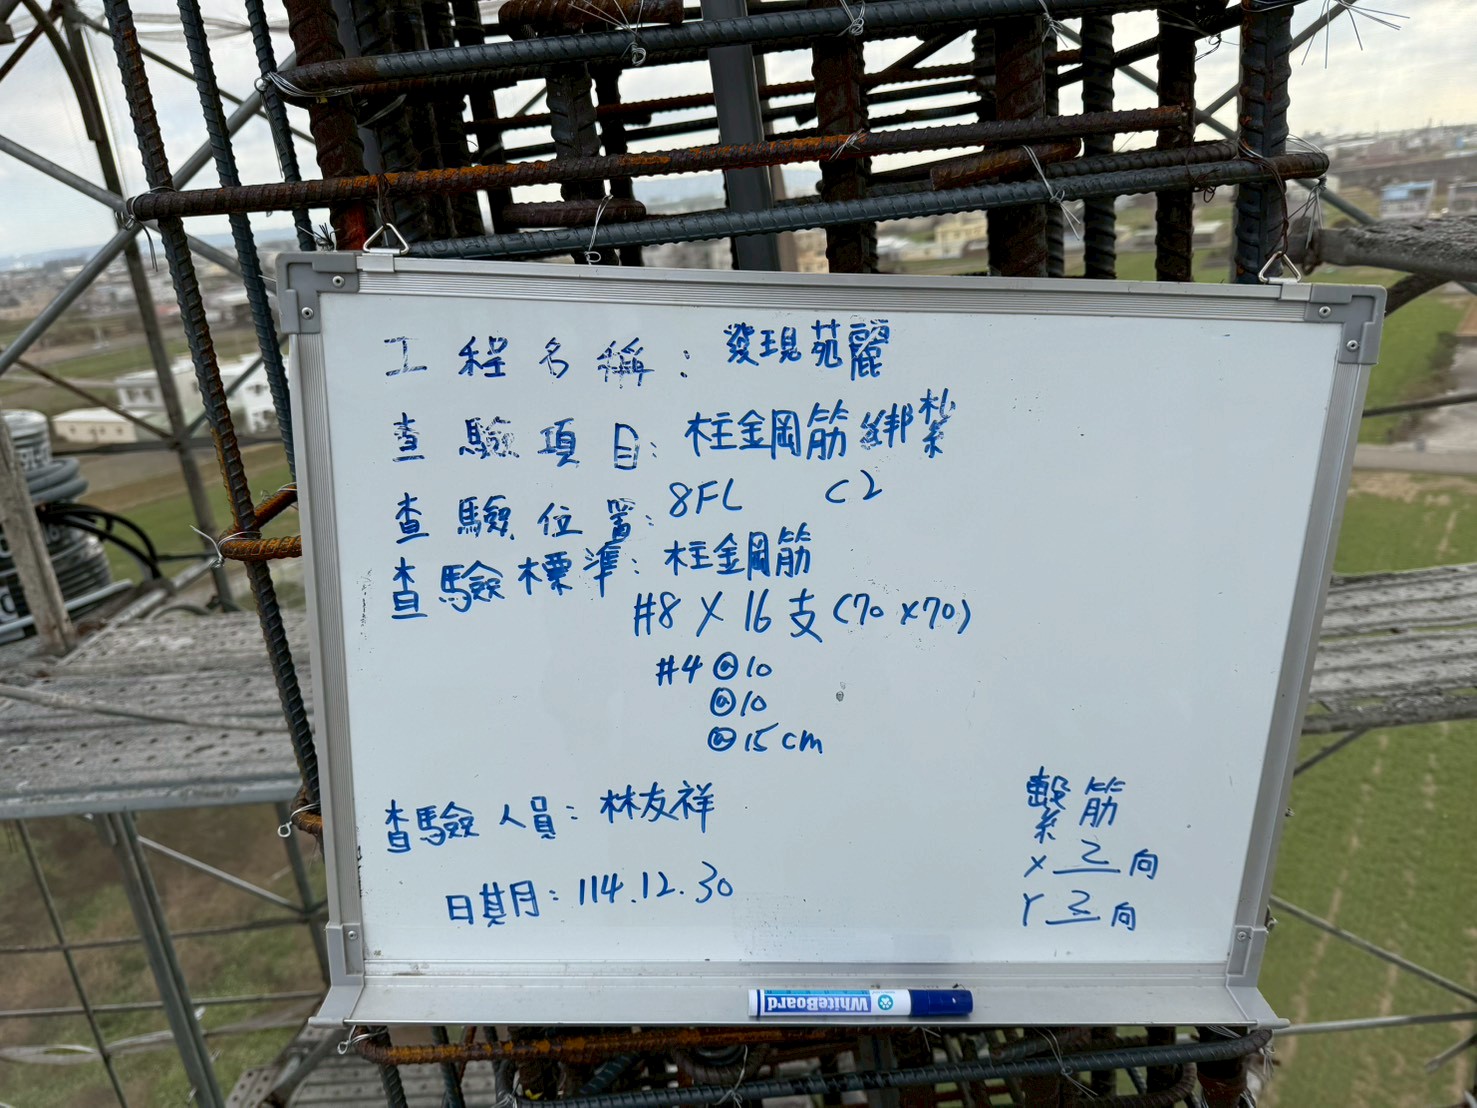 工程名稱：發現苑麗
查驗項目：柱鋼筋綁紮
查驗位置：8FL C2
查驗標準：柱鋼筋
#8 X 16支(70x70)
#4@10
@10
@15cm
查驗人員：林友祥
日期：114.12.30
繫筋
X 2 向
Y 2 向
WhiteBoard